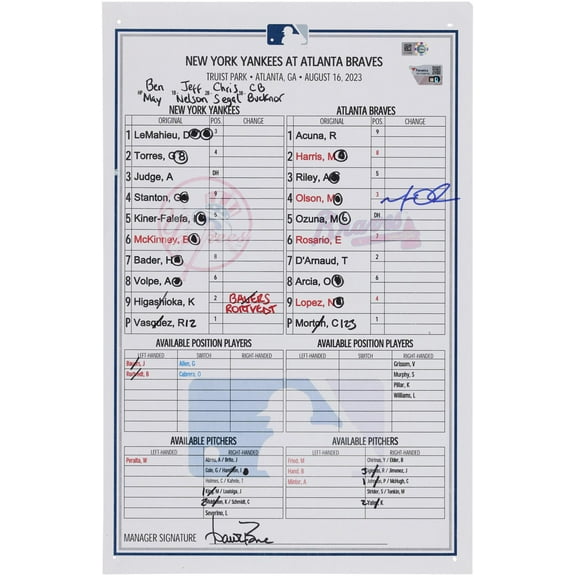 NEW YORK YANKEES AT ATLANTA BRAVES
TRUIST PARK • ATLANTA, GA • AUGUST 16, 2023
Ben Jeff Chris CB
May Nelson Segal Bucknor
NEW YORK YANKEES
ORIGINAL POS. CHANGE
1 LeMahieu, D 3
2 Torres, G 4
3 Judge, A DH
4 Stanton, G 9
5 Kiner-Falefa, I
6 McKinney, B
7 Bader, H 8
8 Volpe, A 6
9 Higashioka, K 2 BAUERS
RORTVEDT
P Vasquez, R 12 1
ATLANTA BRAVES
ORIGINAL POS. CHANGE
1 Acuna, R 9
2 Harris, M 8
3 Riley, A 5
4 Olson, M 3
5 Ozuna, M DH
6 Rosario, E 7
7 D'Arnaud, T 2
8 Arcia, O 6
9 Lopez, N 4
P Morton, C 123 1
AVAILABLE POSITION PLAYERS
LEFT-HANDED SWITCH RIGHT-HANDED
Bauers, J Allen, G
Rortvedt, B Cabrera, O
AVAILABLE POSITION PLAYERS
LEFT-HANDED SWITCH RIGHT-HANDED
Grissom, V
Murphy, S
Pillar, K
Williams, L
AVAILABLE PITCHERS
LEFT-HANDED RIGHT-HANDED
Peralta, W Abreu, A / Brito, J
Cole, G / Hamilton, I
Holmes, C / Kahnle, T
King, M / Loaisiga, J
/ Schmidt, C
Severino, L
AVAILABLE PITCHERS
LEFT-HANDED RIGHT-HANDED
Fried, M Chirinos, Y / Elder, B
Hand, B 3 Iglesias, R / Jimenez, J
Minter, A 1 Johnson, P / McHugh, C
Strider, S / Tonkin, M
2 Yates, K
MANAGER SIGNATURE